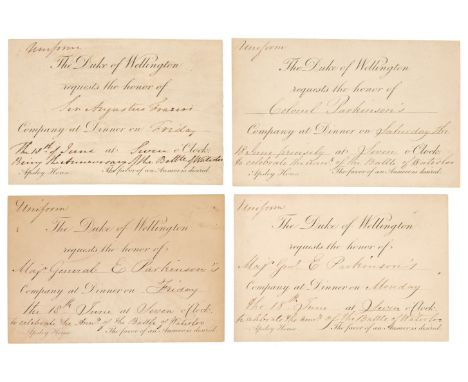 Uniform
The Duke of Wellington
requests the honor of
Sir Augustus Frazer's
Company at Dinner on Friday
The 18th of June at Seven o'Clock
Being the Anniversary of the Battle of Waterloo
Apsley House The favor of an Answer is desired.
Uniform
The Duke of Wellington
requests the honor of
Colonel Parkinson's
Company at Dinner on Saturday the
precisely at Seven o'Clock
to celebrate the of the Battle of Waterloo
Apsley House The favor of an Answer is desired.
Uniform
The Duke of Wellington
requests the honor of
Majr General E Parkinson's
Company at Dinner on Friday
the 18th June at Seven o'Clock
to celebrate the Annv. of the Battle of Waterloo
Apsley House The favor of an Answer is desired.
Uniform
The Duke of Wellington
requests the honor of
Majr Genl E Parkinson's
Company at Dinner on Monday
the 18th June at Seven o'Clock
to celebrate the Annv. of the Battle of Waterloo
Apsley House The favor of an Answer is desired.